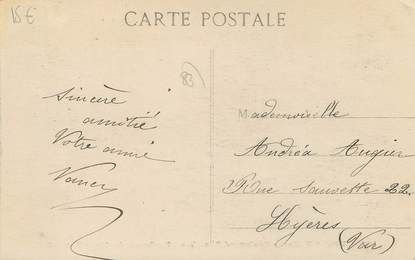 15 €
CARTE POSTALE
83
Sincère
amitié
Votre amie
Nancy
Mademoiselle
Andréa Augier
Rue Sauvette 22
Hyères
(Var)